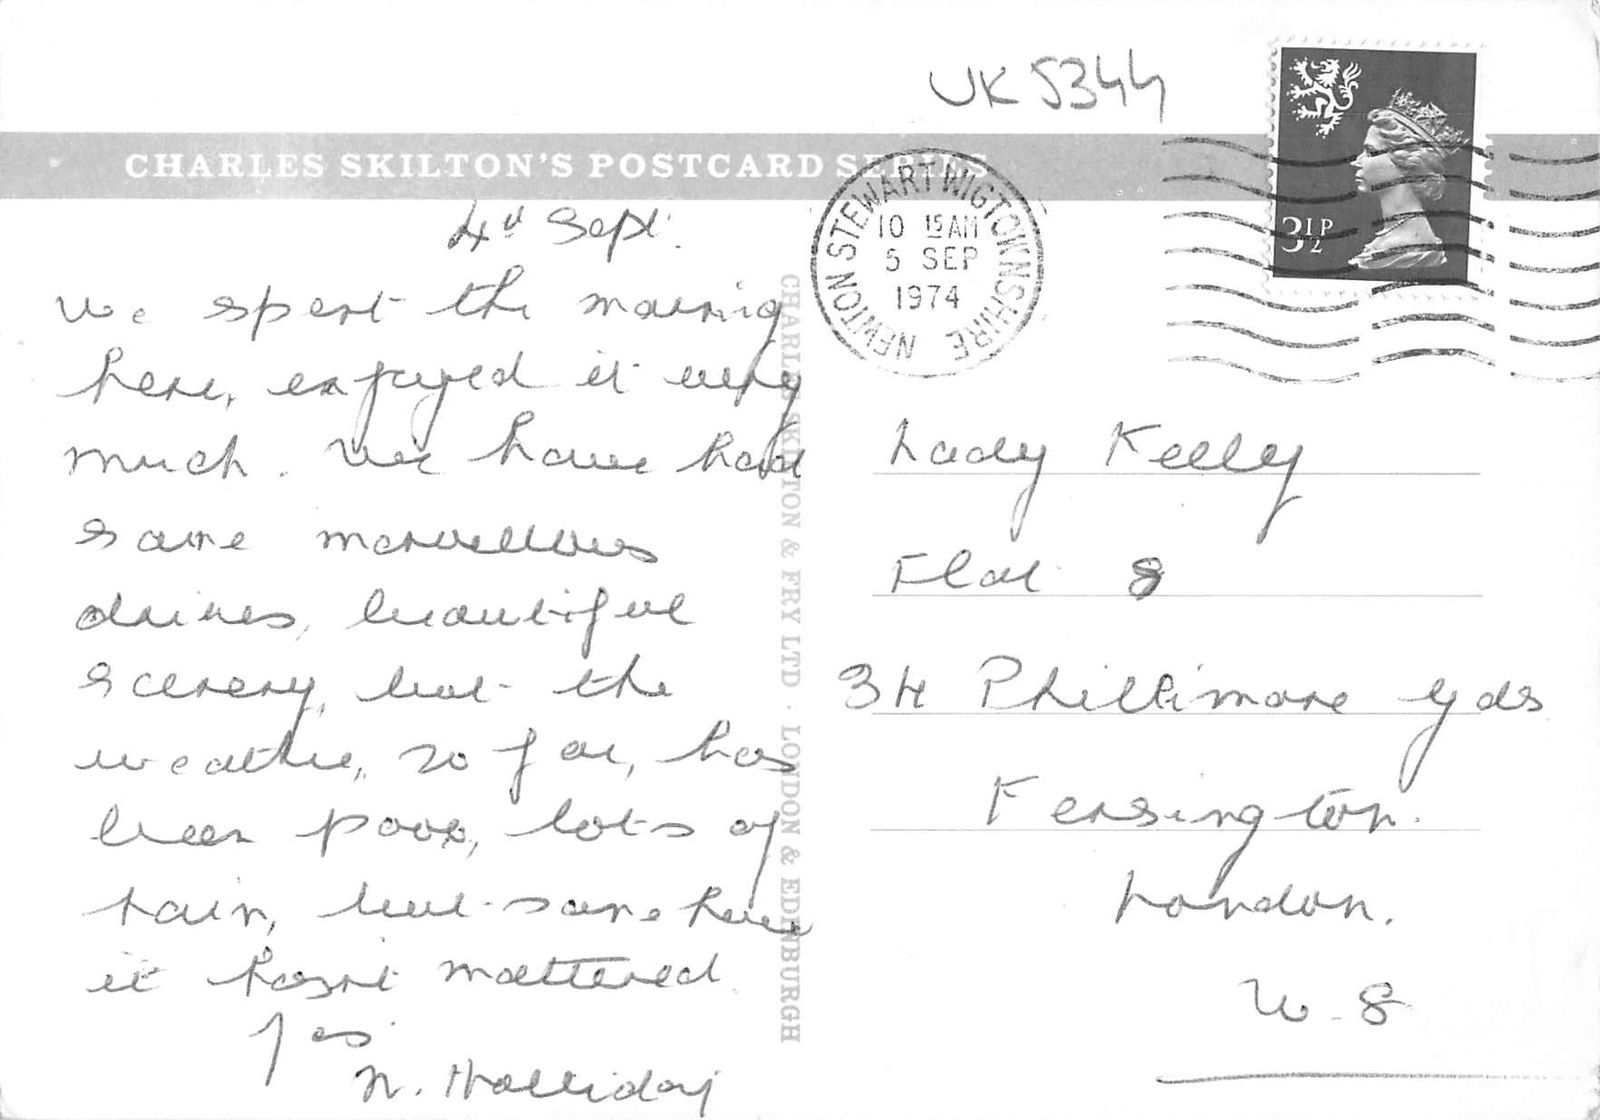 UK 5344
CHARLES SKILTON'S POSTCARD SERIES
NEWTON STEWART WIGTOWNSHIRE
10 15 AM
5 SEP
1974
3½P
4th Sept.
We spent the morning
here, enjoyed it very
much. We have had
some marvellous
drives, beautiful
scenery, but the
weather, so far, has
been poor, lots of
rain, but somehow
it hasn't mattered
N. Holliday
CHARLES SKILTON & FRY LTD · LONDON & EDINBURGH
Lady Kelly
Flat 8
34 Phillimore Gds
Kensington.
London.
W. 8